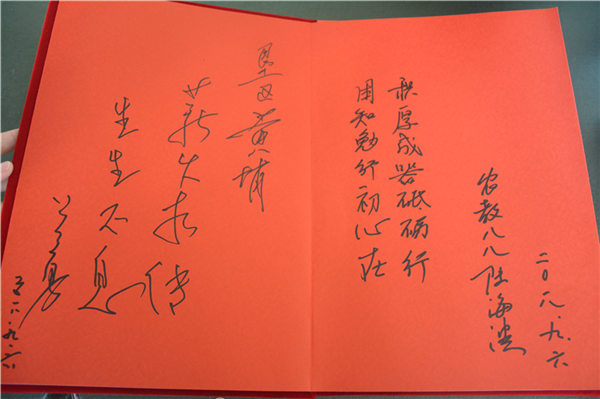 黄埔
薪火相传
生生不息
二〇一八.九.六
困知勉行初心在
积厚成器砥砺行
农教八八 陆海
二〇一八.九.六